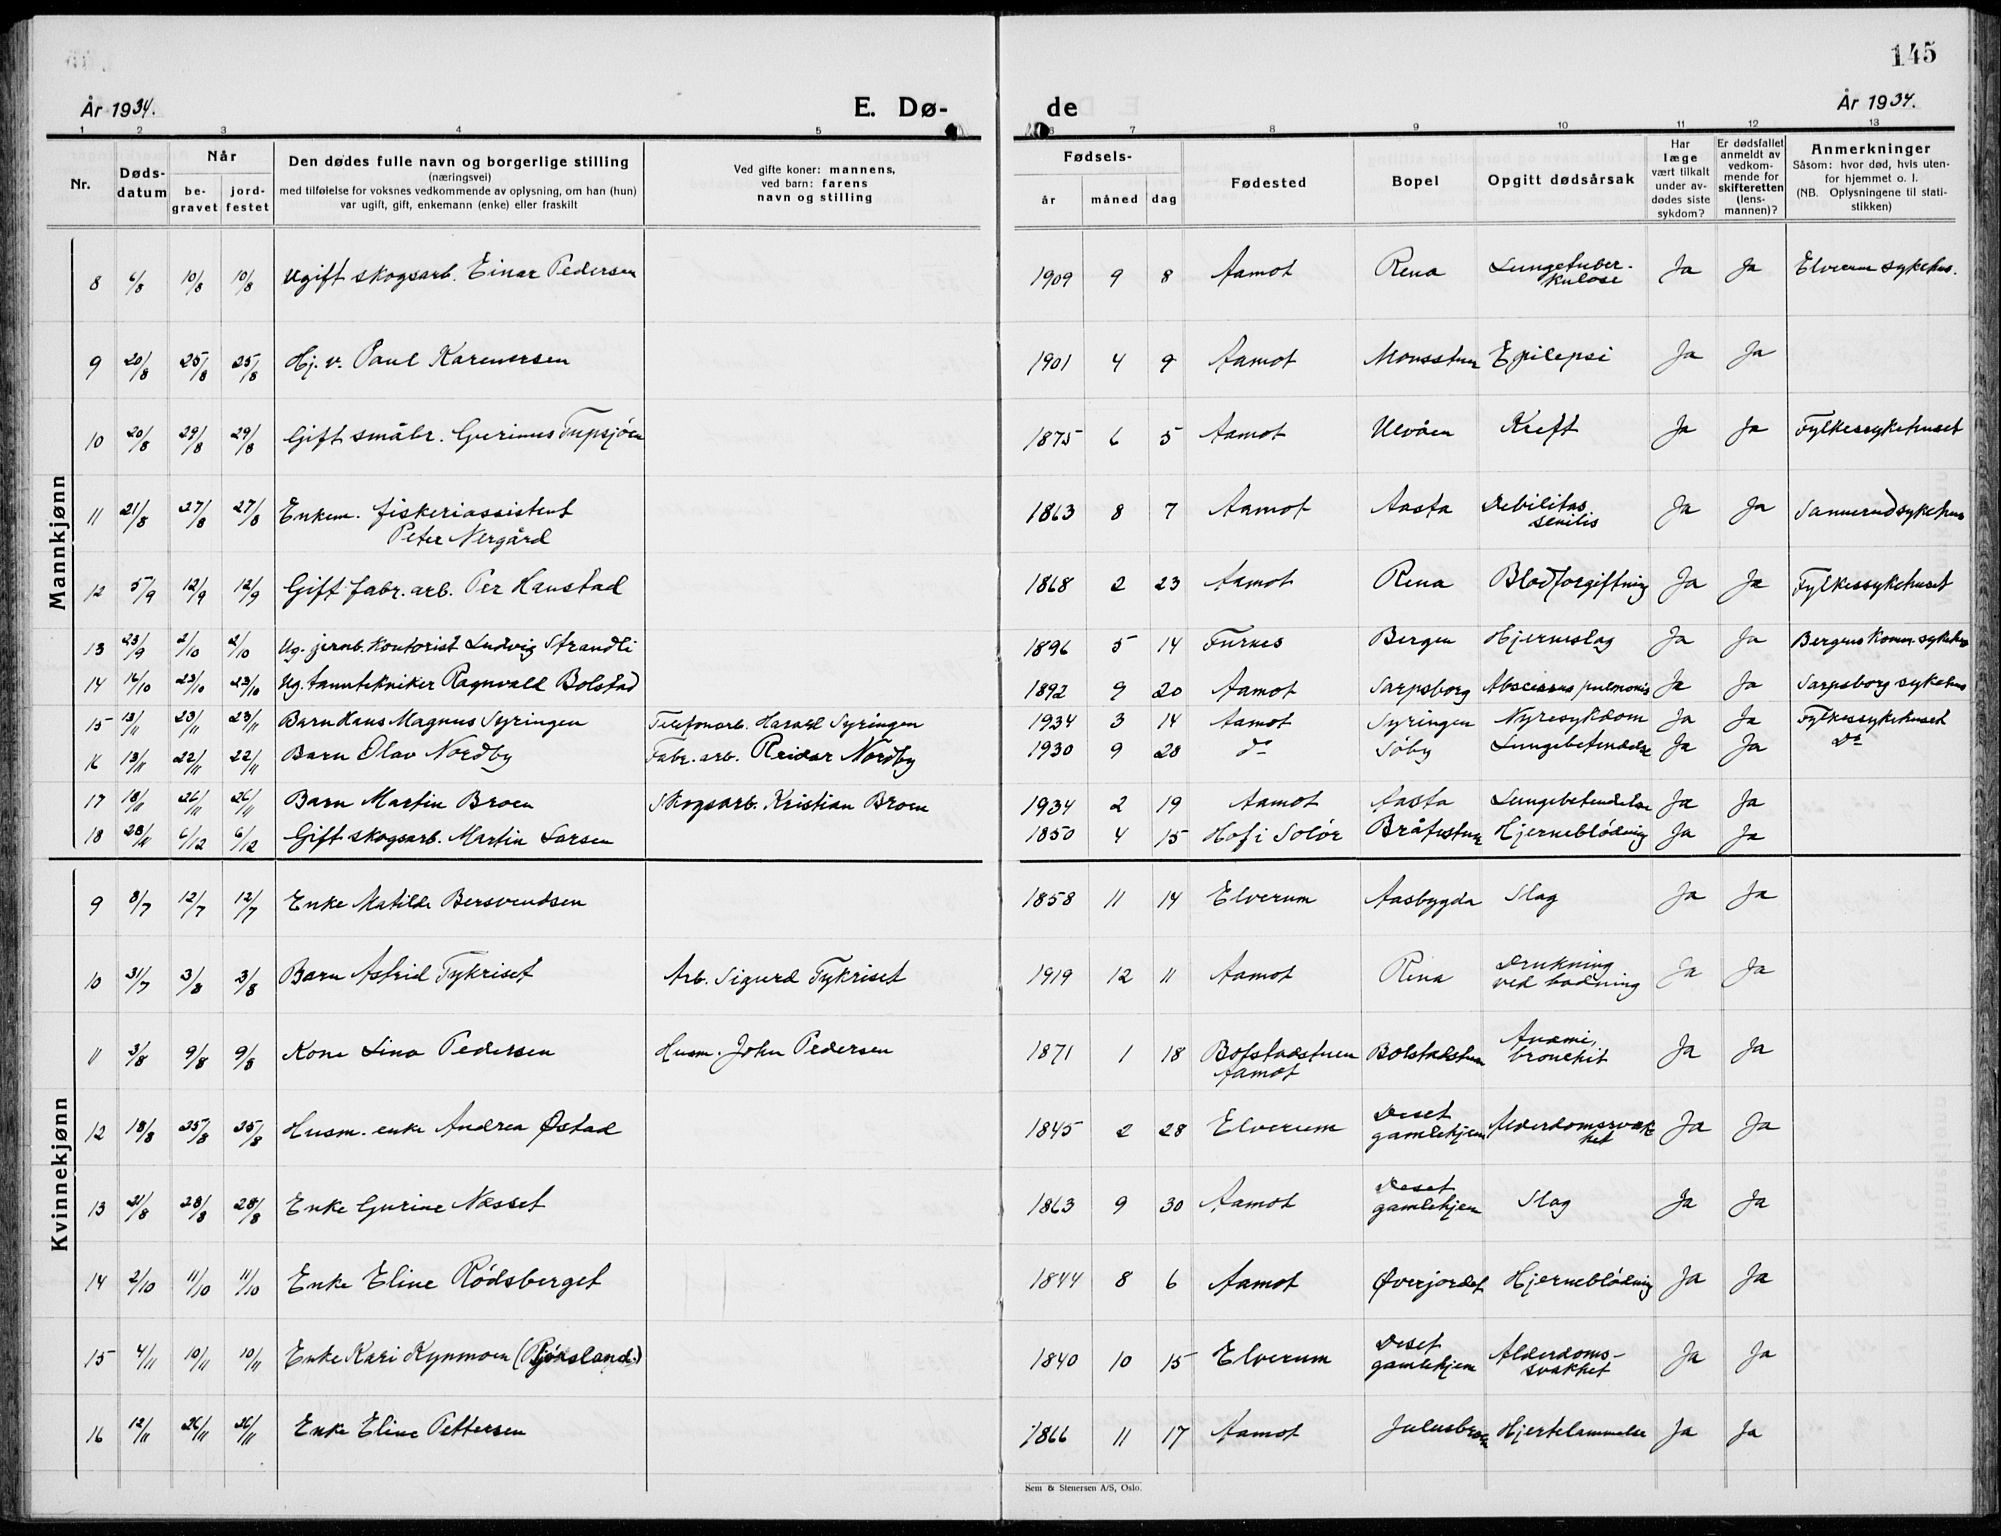 145
År 1934. E. Dø- de År 1934.
1 2 3 4 5 6 7 8 9 10 11 12 13
Nr. Døds-datum Når be-gravet jord-festet Den dødes fulle navn og borgerlige stilling (næringsvei) med tilføielse for voksnes vedkommende av oplysning, om han (hun) var ugift, gift, enkemann (enke) eller fraskilt Ved gifte koner: mannens, ved barn: farens navn og stilling Fødsels- år måned dag Fødested Bopel Opgitt dødsårsak Har læge vært tilkalt under av-dødes siste sykdom? Er dødsfallet anmeldt av vedkom-mende for skifteretten (lens-mannen)? Anmerkninger Såsom: hvor død, hvis uten-for hjemmet o. l. (NB. Oplysningene til stati-stikken)
Mannkjønn
8 6/8 10/8 10/8 Ugift skogsarb. Einar Pedersen 1909 9 8 Aamot Rena Lungetuber-kulose Ja Ja Elverum sykehus.
9 20/8 25/8 25/8 Hj. v. Paul Karenersen 1901 4 9 Aamot Monsstuen Epilepsi Ja Ja
10 20/8 29/8 29/8 Gift småbr. Gverinus Tupsjøen 1875 6 5 Aamot Ulvåen Kreft Ja Ja Fylkessykehuset
11 21/8 27/8 27/8 Enkem. fiskeriassistent Peter Nergård 1863 8 7 Aamot Aasta Debilitas senilis Ja Ja Sannerudsykehus
12 5/9 12/9 12/9 Gift fabr. arb. Per Haustad 1868 2 23 Aamot Rena Blodforgiftning Ja Ja Fylkessykehuset
13 23/9 2/10 2/10 Ug. jernb. kontorist Ludvig Strandli 1896 5 14 Furnes Bergen Hjerneslag Ja Ja Bergens Komm. sykehus
14 16/10 23/10 23/10 Ug. tanntekniker Ragnvald Bolstad 1892 9 20 Aamot Sarpsborg Abscessus pulmonis Ja Ja Sarpsborg sykehus
15 13/11 23/11 23/11 Barn Hans Magnus Syringen Telefonarb. Harald Syringen 1934 3 14 Aamot Syringen Nyresykdom Ja Ja Fylkessykehuset
16 13/11 22/11 22/11 Barn Olav Nordby Fabr. arb. Reidar Nordby 1930 9 28 do Søby Lungebetendelse Ja Ja Do
17 18/11 26/11 26/11 Barn Martin Broen Skogsarb. Kristian Broen 1934 2 19 Aamot Aasta Lungebetendelse Ja Ja
18 28/11 6/12 6/12 Gift skogsarb. Martin Larsen 1850 4 15 Hof i Solør Bråtestuen Hjerneblødning Ja Ja
Kvinnekjønn
9 8/7 12/7 12/7 Enke Matilde Bersvendsen 1858 11 14 Elverum Aasbygda Slag Ja Ja
10 31/7 3/8 3/8 Barn Astrid Tykriset Arb. Sigurd Tykriset 1919 12 11 Aamot Rena Drukning ved badning Ja Ja
11 3/8 9/8 9/8 Kone Lina Pedersen Husm. John Pedersen 1871 1 18 Bolstadstuen Aamot Bolstadstuen Anæmi, bronchit Ja Ja
12 18/8 25/8 25/8 Husm. enke Andrea Østad 1845 2 28 Elverum Deset gamlehjem Alderdomssvakhet Ja Ja
13 21/8 28/8 28/8 Enke Gurine Næsset 1863 9 30 Aamot Deset gamlehjem Slag Ja Ja
14 2/10 11/10 11/10 Enke Eline Rødsberget 1844 8 6 Aamot Øverjordet Hjerneblødning Ja Ja
15 4/11 10/11 10/11 Enke Kari Kynmoen 1840 10 15 Elverum Deset gamlehjem Alderdoms-svakhet Ja Ja
16 12/11 26/11 26/11 Enke Eline Pettersen 1866 11 17 Aamot Hjertelammelse Ja Ja
Sem & Stenersen A/S, Oslo.